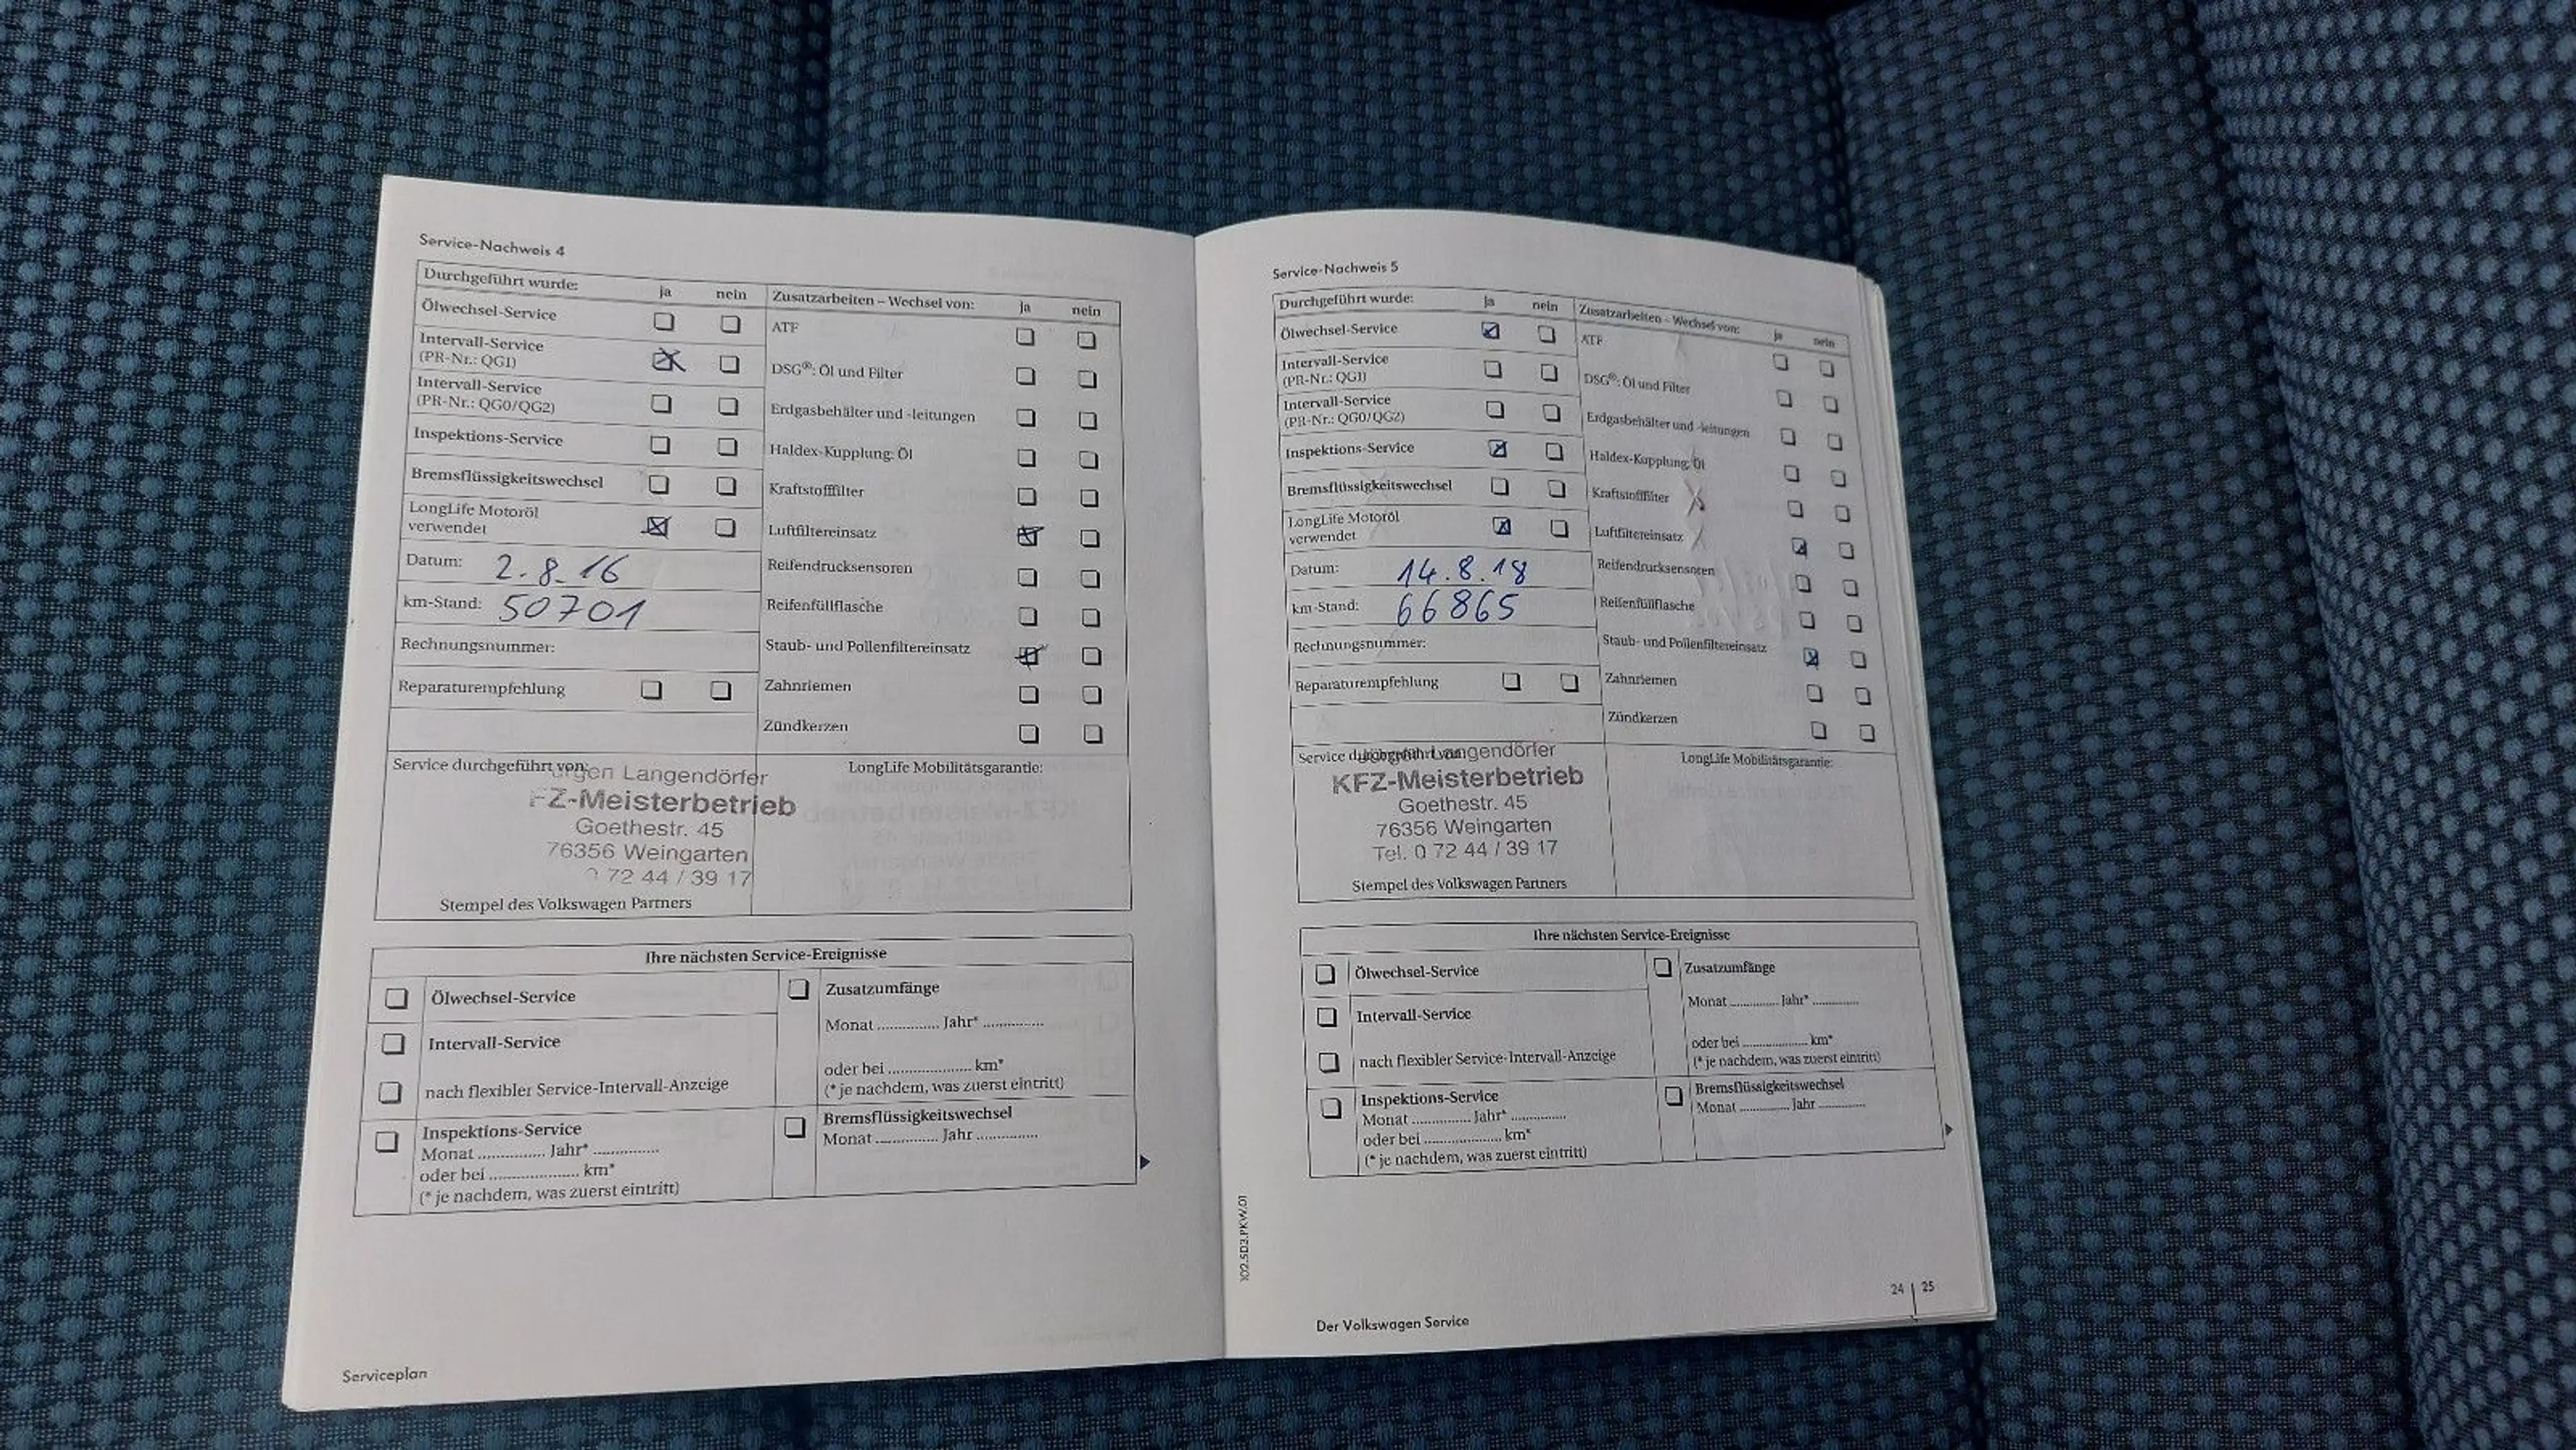 Service-Nachweis 4
Durchgeführt wurde: ja nein
Ölwechsel-Service
Intervall-Service
(PR-Nr.: QG1)
Intervall-Service
(PR-Nr.: QG0/QG2)
Inspektions-Service
Bremsflüssigkeitswechsel
LongLife Motoröl
verwendet
Datum: 2.8.16
km-Stand: 50701
Rechnungsnummer:
Reparaturempfehlung
Zusatzarbeiten – Wechsel von: ja nein
ATF
DSG®: Öl und Filter
Erdgasbehälter und -leitungen
Haldex-Kupplung: Öl
Kraftstofffilter
Luftfiltereinsatz
Reifendrucksensoren
Reifenfüllflasche
Staub- und Pollenfiltereinsatz
Zahnriemen
Zündkerzen
Service durchgeführt von:
Langendörfer
FZ-Meisterbetrieb
Goethestr. 45
76356 Weingarten
72 44 / 39 17
Stempel des Volkswagen Partners
LongLife Mobilitätsgarantie:
Ihre nächsten Service-Ereignisse
Ölwechsel-Service
Intervall-Service
nach flexibler Service-Intervall-Anzeige
Inspektions-Service
Monat ............... Jahr* ...............
oder bei ..................... km*
(* je nachdem, was zuerst eintritt)
Zusatzumfänge
Monat ............... Jahr* ...............
oder bei ..................... km*
(* je nachdem, was zuerst eintritt)
Bremsflüssigkeitswechsel
Monat ............... Jahr ...............
Serviceplan
Service-Nachweis 5
Durchgeführt wurde: ja nein
Ölwechsel-Service
Intervall-Service
(PR-Nr.: QG1)
Intervall-Service
(PR-Nr.: QG0/QG2)
Inspektions-Service
Bremsflüssigkeitswechsel
LongLife Motoröl
verwendet
Datum: 14.8.18
km-Stand: 66865
Rechnungsnummer:
Reparaturempfehlung
Zusatzarbeiten – Wechsel von: ja nein
ATF
DSG®: Öl und Filter
Erdgasbehälter und -leitungen
Haldex-Kupplung: Öl
Kraftstofffilter
Luftfiltereinsatz
Reifendrucksensoren
Reifenfüllflasche
Staub- und Pollenfiltereinsatz
Zahnriemen
Zündkerzen
Service durchgeführt von:
Jürgen Langendörfer
KFZ-Meisterbetrieb
Goethestr. 45
76356 Weingarten
Tel. 0 72 44 / 39 17
Stempel des Volkswagen Partners
LongLife Mobilitätsgarantie:
Ihre nächsten Service-Ereignisse
Ölwechsel-Service
Intervall-Service
nach flexibler Service-Intervall-Anzeige
Inspektions-Service
Monat ............... Jahr* ...............
oder bei ..................... km*
(* je nachdem, was zuerst eintritt)
Zusatzumfänge
Monat ............... Jahr* ...............
oder bei ..................... km*
(* je nachdem, was zuerst eintritt)
Bremsflüssigkeitswechsel
Monat ............... Jahr ...............
102.5D3.PKW.01
24 | 25
Der Volkswagen Service